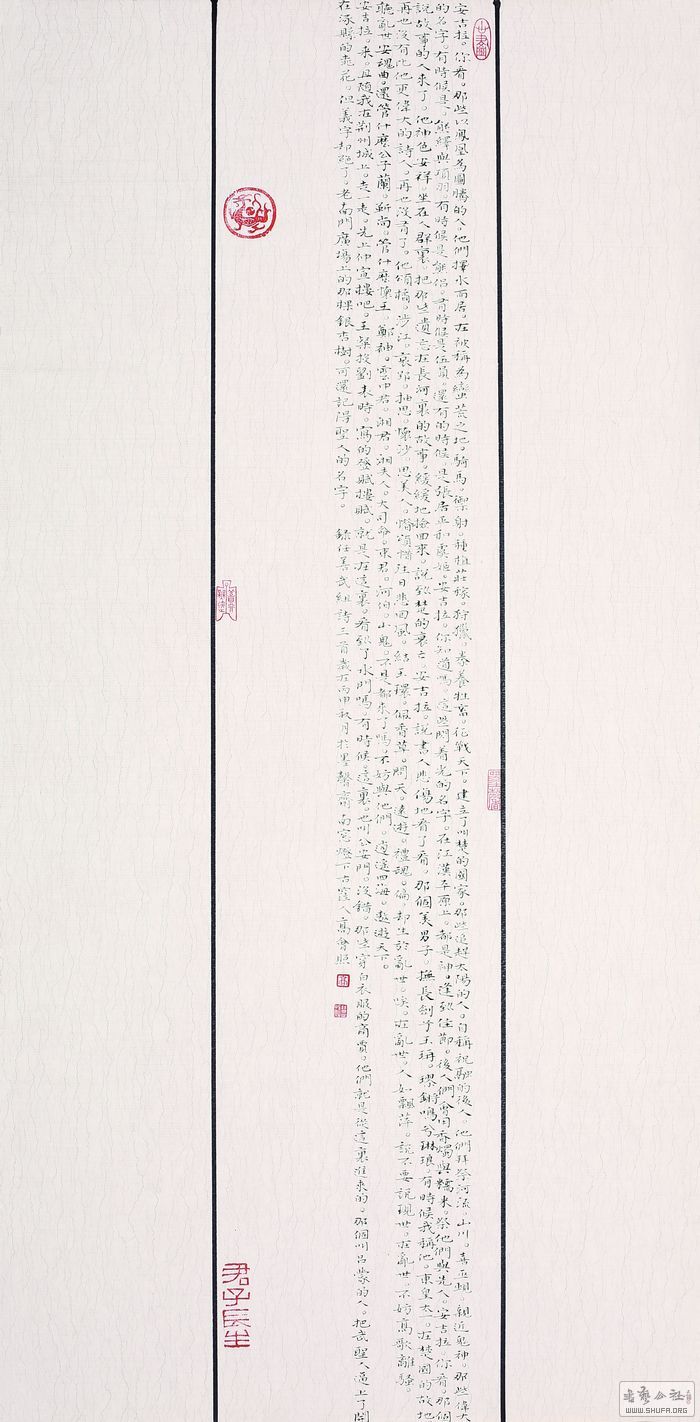 安吉拉。你看。那些以鳳凰為圖騰的人。他們擇水而居。在被稱為蠻荒之地。騎馬。御射。種植莊稼。狩獵。豢養牲畜。征戰天下。建立了叫楚的國家。那些追趕太陽的人。自稱祝融的後人。他們拜祭河流。山川。喜巫蠱。親近鬼神。那些偉大
的名字。有時候是。熊繹與項羽。有時候是熊侶。有時候是伍員。還有的時候。是張居正和虞姬。安吉拉。你知道嗎。這些閃着光的名字。在江漢平原上。都是神。逢到佳節。後人們會用香燭與糯米。祭他們與先人。安吉拉。你看。那個
說故事的人來了。他神色安祥。坐在人群裏。把那些遺忘在長河裏的故事。緩緩地撿回來。說到楚的衰亡。安吉拉。說書人悲傷地看了看。那個美男子。撫長劍兮玉珥。璆鏘鳴兮琳琅。有時候我稱他。東皇太一。在楚國的故地
再也沒有比他更偉大的詩人。再也沒有了。他頌橘。涉江。哀郢。抽思。懷沙。思美人。惜誦惜往日悲回風。結玉環。佩香草。問天。遠遊。禮魂。偏。却生於亂世。唉。在亂世。人如飄萍。說不要說現世。在亂世。不妨高歌離騷。
聽亂世安魂曲。還管什麽公子蘭。靳尚。管什麽懷王。鄭袖。雲中君。湘君。湘夫人。大司命。東君。河伯。山鬼。不是都來了嗎。不妨與他們。逍遙四海。遨遊天下。
安吉拉。來。且隨我在荆州城上。走一走。先上仲宣樓吧。王粲投劉表時。寫的登賦樓賦。就是在這裏。看到了水門嗎。有時候。這裏。也叫公安門。沒錯。那些穿白衣服的商賈。他們就是從這裏進來的。那個叫吕蒙的人。把武聖人逼上了
在涿縣的桃花。但義字却絕了。老南門廣場上的那棵銀杏樹。可還記得聖人的名字。 錄任善武組詩三首歲在丙申秋月於墨馨齋南窗燈下古人高會照
君子長生
WWW.SHUFA.ORG